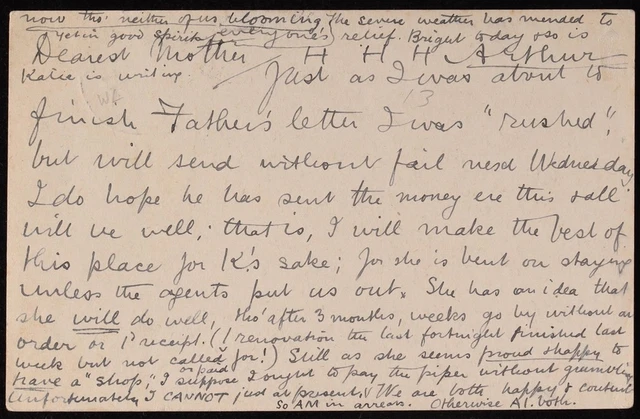 now tho' neither of us blooming (the severe weather has mended to
yet in good spirits everyone's relief. Bright today so is
Dearest Mother H H H H Arthur
Katie is writing. Just as I was about to
13
finish Father's letter I was "rushed",
but will send without fail next Wednesday
I do hope he has sent the money ere this & all
will be well; that is, I will make the best of
this place for K's sake; for she is bent on staying
unless the agents put us out. She has an idea that
she will do well, tho' after 3 months, weeks go by without an
order or 1d receipt! (1 renovation the last fortnight finished last
week but not called for!) Still as she seems proud & happy to
or paid
have a "shop," I suppose I ought to pay the piper without grumbling
Unfortunately I CANNOT just at present. We are both happy & content
So AM in arrears. Otherwise A1. both.